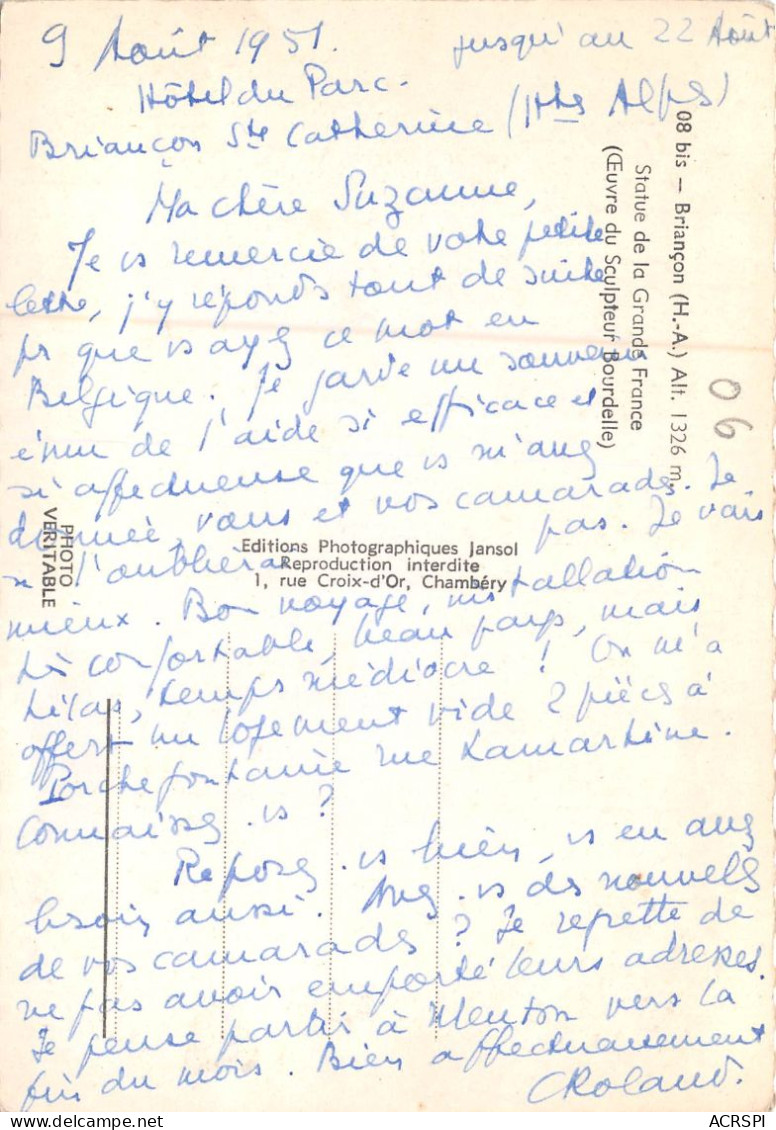 9 Août 1951. jusqu'au 22 Août
Hôtel du Parc.
Briançon Ste Catherine (Htes Alpes)
Ma chère Suzanne,
Je vs remercie de votre petite
lettre, j'y réponds tout de suite
pr que vs ayez ce mot en
Belgique. Je garde un souvenir
ému de l'aide si efficace et
si affectueuse que vs m'avez
donnée, vous et vos camarades. Je
n l'oublierai pas. Je vais
mieux. Bon voyage, installation
très confortable, beau pays, mais
hélas, temps médiocre ! On m'a
offert un logement vide 2 pièces à
Porchefontaine rue Lamartine.
Connaissez-vs ?
Reposez-vs bien, vs en avez
besoin aussi. Avez-vs des nouvelles
de vos camarades ? Je regrette de
ne pas avoir emporté leurs adresses.
Je pense partir à Menton vers la
fin du mois. Bien affectueusement
CRoland.
08 bis — Briançon (H.-A.) Alt. 1326 m.
Statue de la Grande France
(Œuvre du Sculpteur Bourdelle)
06
PHOTO
VERITABLE
Editions Photographiques Jansol
Reproduction interdite
1, rue Croix-d'Or, Chambéry
ACRSPI